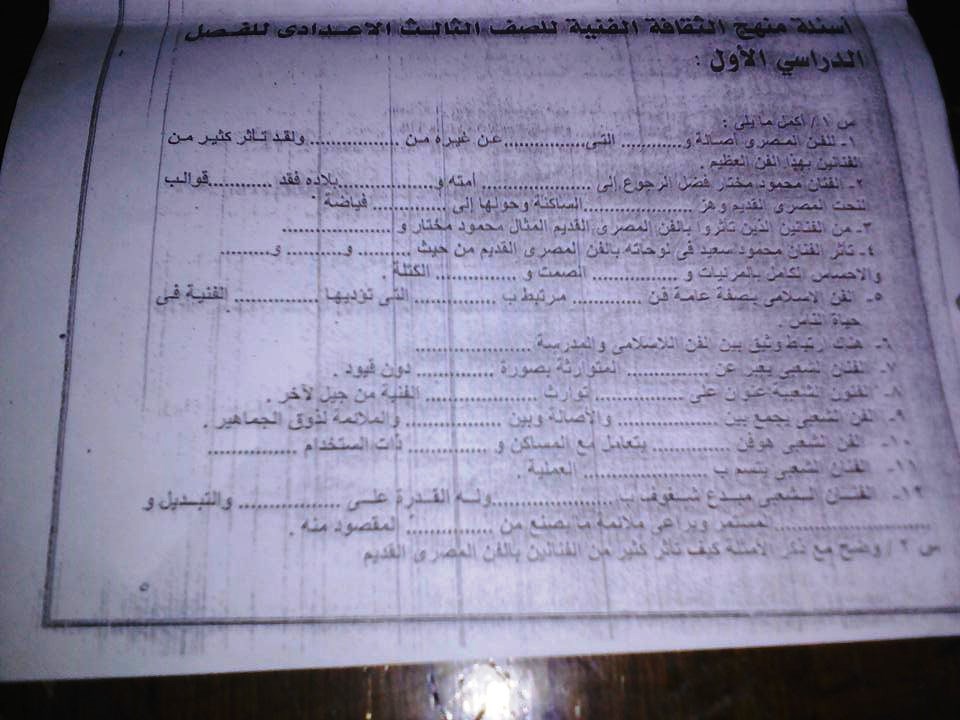 أسئلة منهج الثقافة الفنية للصف الثالث الاعدادى للفصل
الدراسي الأول :
س ١ / أكمل ما يلى :
١- للفن المصرى أصالة و............ التى ............... عن غيره من ................. ولقد تأثر كثير من
الفنانين بهذا الفن العظيم .
٢- الفنان محمود مختار فضل الرجوع إلى .................... أمته و.................. بلاده فقد ............ قوالب
النحت المصرى القديم وهز ..................... الساكنة وحولها إلى .............. فياضة
٣- من الفنانين الذين تأثروا بالفن المصرى القديم المثال محمود مختار و .....................
٤- تأثر الفنان محمود سعيد فى لوحاته بالفن المصرى القديم من حيث .......... و........... و..........
والاحساس الكامل بالمرئيات و ................ الصمت و ............... الكتلة .
٥- الفن الاسلامى بصفة عامة فن ............. مرتبط ب ................ التى تؤديها ................ الفنية فى
حياة الناس .
٦- هناك ارتباط وثيق بين الفن الاسلامى والمدرسة ......................
٧- الفنان الشعبى يعبر عن ............... المتوارثة بصورة ............... دون قيود .
٨- الفنون الشعبية عنوان على ................. توارث ..................... الفنية من جيل لآخر .
٩- الفن الشعبى يجمع بين .............. والأصالة وبين .................. والملائمة لذوق الجماهير .
١٠- الفن الشعبى هوفن ............ يتعامل مع المساكن و ............... ذات استخدام ................
١١- الفنان الشعبى يتسم ب ....................... العملية .
١٢- الفنان الشعبى مبدع شغوف ب ..................... وله القدرة على ................... والتبديل و
............................ المستمر ويراعى ملائمة ما يصنع من ................ المقصود منه .
س ٢ / وضح مع ذكر الأمثلة كيف تأثر كثير من الفنانين بالفن المصرى القديم
٥